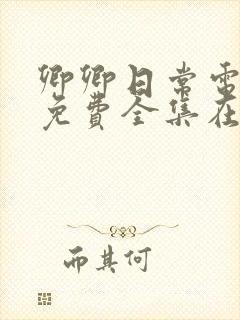 卿卿日常電
免費全集在
而其何